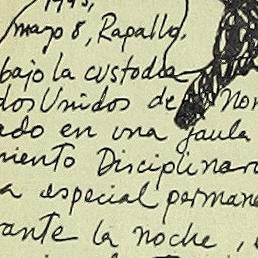 1945,
mayo 8, Rapallo.
bajo la custodia
dos Unidos de Nor
ado en una jaula
miento Disciplinar
a especial permane
rante la noche, e